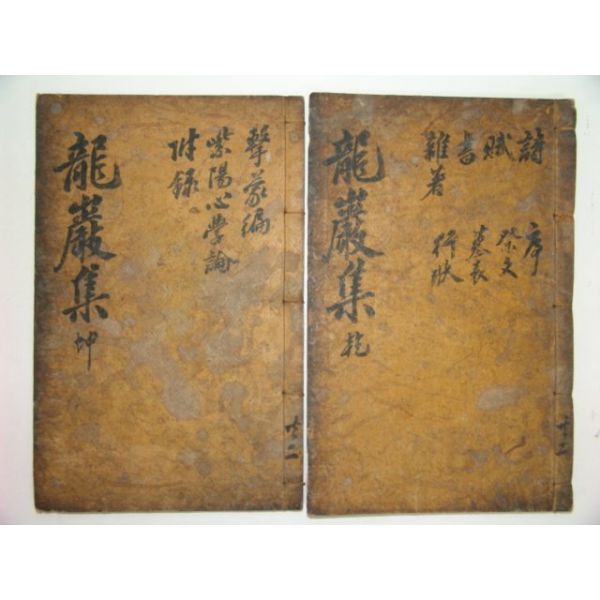 共二
詩 序
賦 祭文
書 墓表
雜著 行狀
龍巖集 乾
共二
擊蒙編
紫陽心學論
附錄
龍巖集 坤